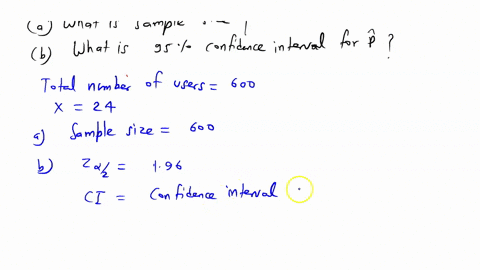 (a) What is sample size ?
(b) What is 95% confidence interval for p̂ ?
Total number of users = 600
X = 24
a) Sample size = 600
b) Zα/2 = 1.96
CI = Confidence interval